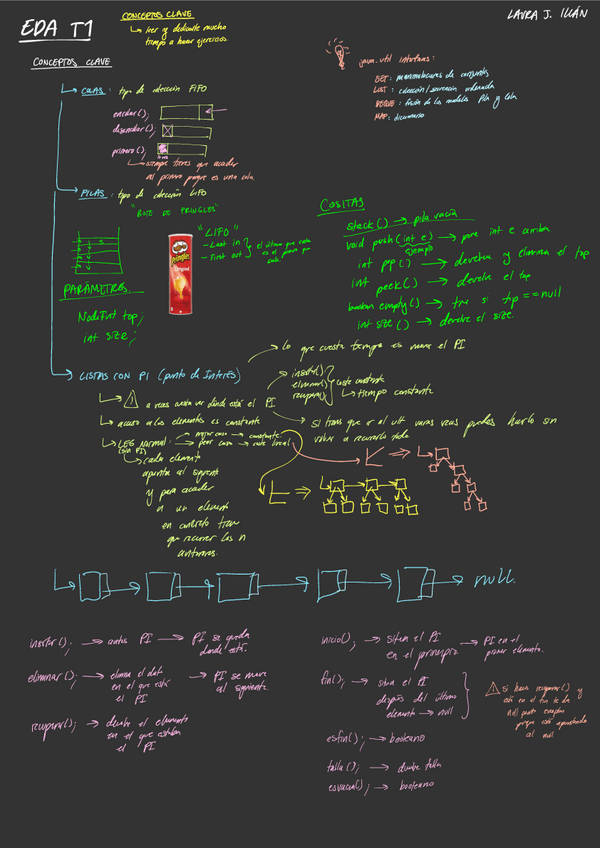 EDA T1
CONCEPTOS CLAVE
↳ leer y dedicarle mucho
tiempo a hacer ejercicios
LAURA J. ILLÁN
CONCEPTOS CLAVE
java.util interfaces:
SET:
LIST: colección/secuencia ordenada
DEQUE: fusión de los modelos Pila y Cola
MAP: diccionario
↳ COLAS: tipo de colección FIFO
encolar();
desencolar();
primero();
↳ siempre tienes que acceder
al primero porque es una cola.
↳ PILAS: tipo de colección LIFO
"BOTE DE PRINGLES"
"LIFO"
- Last in
- First out
el último que entra
es el primero que
sale
Pringles
Original
PARÁMETROS
NodeInt top;
int size;
COSITAS
stack() → pila vacía
void push(int e) → pone int e arriba
ejemplo
int pop() → devuelve y elimina el top
int peek() → devolve el top
boolean empty() → true si top == null
int size() → devolve el size.
↳ LISTAS CON PI (punto de Interés)
→ lo que cuesta tiempo es mover el PI
insertar()
eliminar()
recuperar()
coste constante
↳ tiempo constante
↳ ⚠ a veces cuesta ver donde está el PI
↳ acceso a los elementos es constante
→ si tienes que ir al ult varias veces puedes hacerlo sin
volver a recorrerlo todo
↳ LEG Normal: → mejor caso → constante
(sin PI) → peor caso → coste lineal
↳ cada elemento
apunta al siguiente
y para acceder
a un elemento
en concreto tiene
que recorrer los n
anteriores.
null.
insertar(); → antes PI → PI se queda
donde está.
eliminar(); → elimina el dato
en el que está
el PI
→ PI se mueve
al siguiente.
recuperar(); → devuelve el elemento
en el que estaba
el PI
inicio(); → sitúa el PI
en el principio
→ PI en el
primer elemento.
fin(); → sitúa el PI
después del último
elemento → null
⚠ si haces recuperar() y
está en el fin te da
null
porque está apuntando
al null
esfin(); → booleano
talla(); → devuelve talla
esvacia(); → booleano